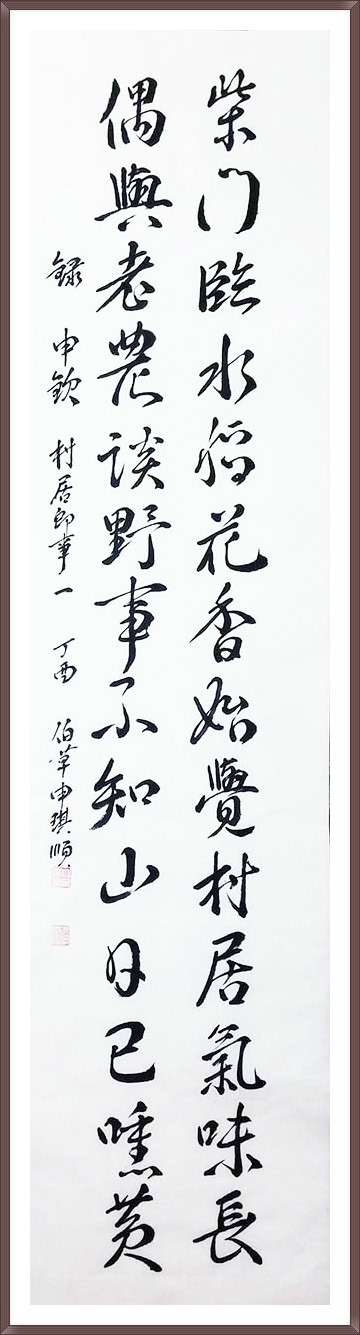 柴門臨水稻花香始覺村居氣味長
偶與老農談野事不知山月已曛黃
錄 申欽 村居即事一 丁酉 伯草申琪順